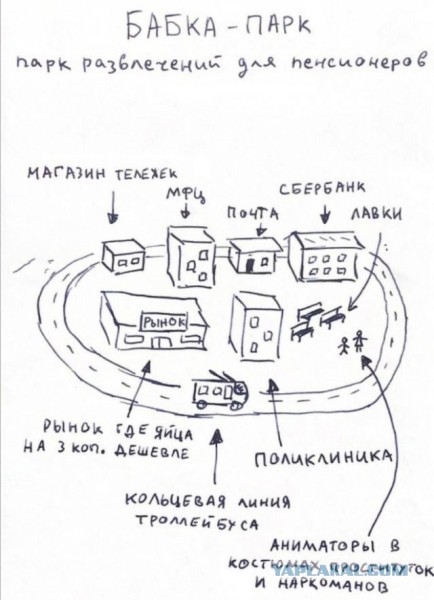 БАБКА - ПАРК
парк развлечений для пенсионеров
МАГАЗИН ТЕЛЕЖЕК
МФЦ
ПОЧТА
СБЕРБАНК
ЛАВКИ
РЫНОК
РЫНОК ГДЕ ЯЙЦА
НА 3 КОП. ДЕШЕВЛЕ
ПОЛИКЛИНИКА
КОЛЬЦЕВАЯ ЛИНИЯ
ТРОЛЛЕЙБУСА
АНИМАТОРЫ В
КОСТЮМАХ ПРОСТИТУТОК
И НАРКОМАНОВ
YAPLAKAL.COM